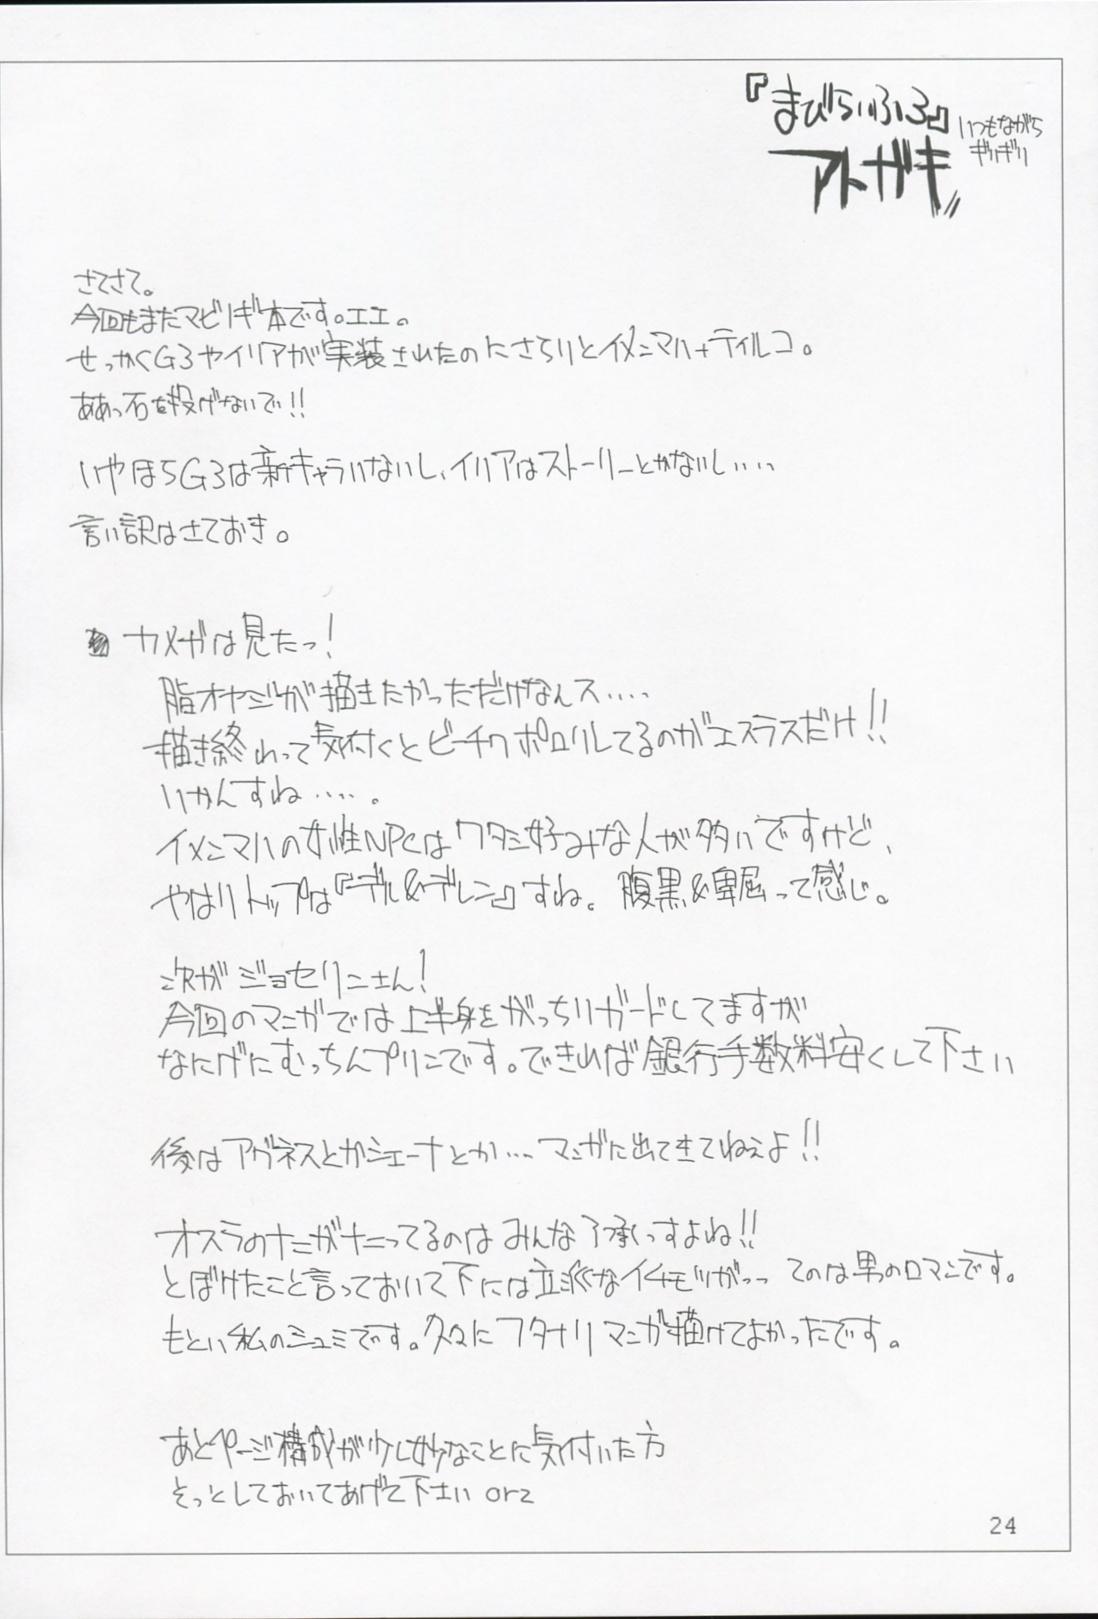 『まびらいふ3』
アトガキ
いつもながら
ギリギリ
さてさて。
今回もまたマビノギ本です。エエ。
せっかくG3やイリアが実装されたのにさらりとイメンマハ+ティルコ。
ああっ石を投げないで!!
いやほらG3は新キャラいないし、イリアはストーリーとかないし‥‥
言い訳はさておき。
カメヤは見たっ!
脂オヤジが描きたかっただけなんス‥‥
描き終わって気付くとビーチクポロリしてるのがエスラスだけ!!
いかんすね‥‥。
イメンマハの女性NPCはワタシ好みな人が多いですけど、
やはりトップは『デル&デレン』すね。腹黒&卑屈って感じ。
次がジョセリンさん!
今回のマンガでは上半身をがっちりガードしてますが
なにげにむっちんプリンです。できれば銀行手数料安くして下さい
後はアグネスとかシェーナとか‥‥マンガに出て生てねえよ!!
オスラのナニがナニってるのはみんな了承っすよね!!
とぼけたこと言っておいて下には立派なイチモツがっっ てのは男のロマンです。
もとい私のシュミです。久々にフタナリマンガ描けてよかったです。
あとページ構成が少し妙なことに気付いた方
そっとしておいてあげて下さい orz
24